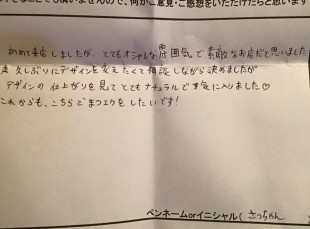 けることでも構いませんので、何かご意見・ご感想をいただけたらと思います
初めて来店しましたが、とてもオシャレな雰囲気で素敵なお店だと思いました
久しぶりにデザインを変えたくて相談しながら決めましたが
デザインの仕上がりを見てとてもナチュラルで気に入りました♡
これからも、こちらでまつエクをしたいです!
ペンネームorイニシャル( さっちゃん